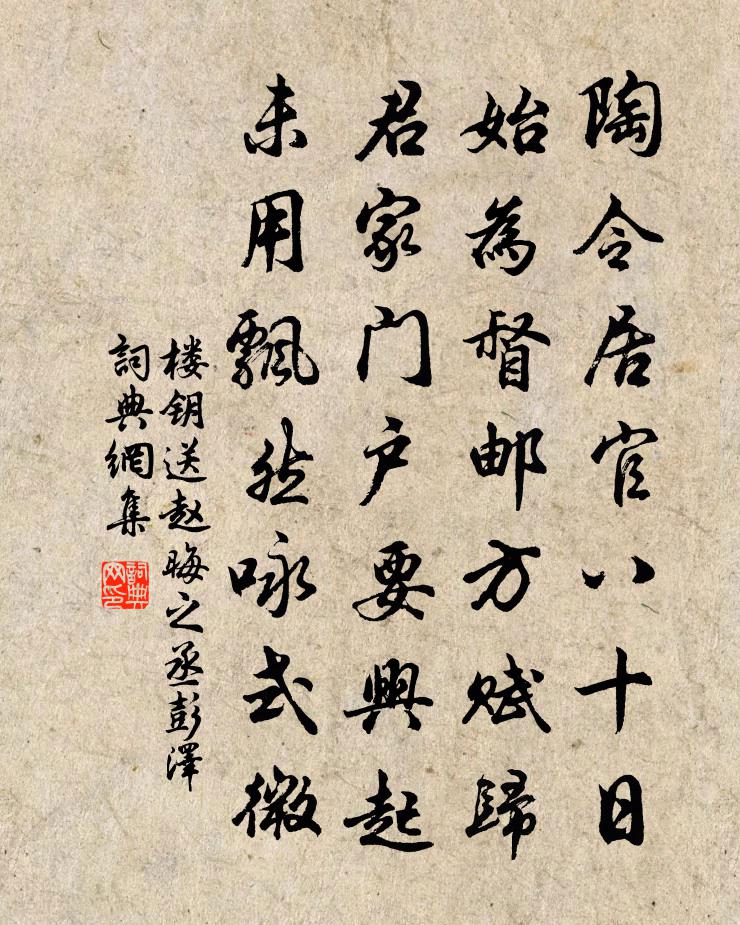 陶令居官八十日
始為督邮方赋歸
君家门户要興起
未用飘然咏式微
楼钥送赵晦之丞彭澤
詞典網集
詞典网印